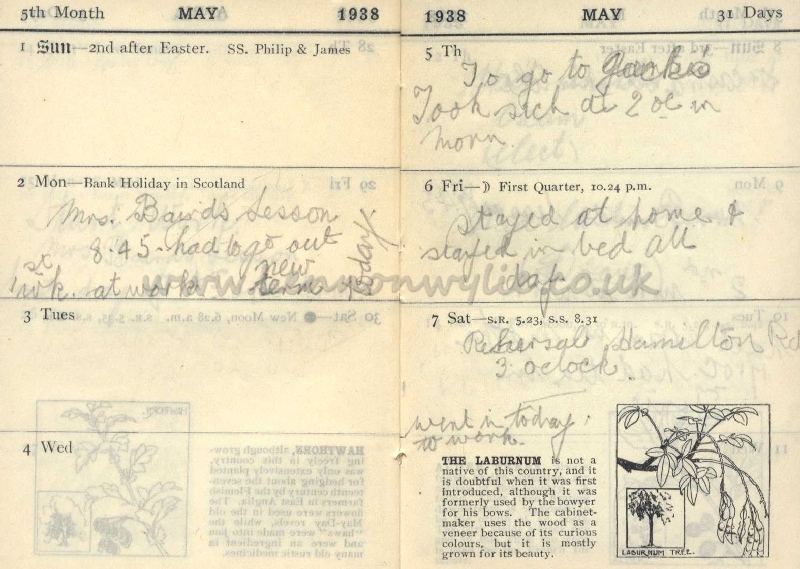 5th Month MAY 1938
1 Sun—2nd after Easter. SS. Philip & James
2 Mon—Bank Holiday in Scotland
Mrs. Baird's Lesson
8.45. had to go out
st today.
wk. at work new term
3 Tues
4 Wed
1938 MAY 31 Days
5 Th
To go to Jack's
Took sick at 2 oc in
morn.
6 Fri—☽ First Quarter, 10.24 p.m.
stayed at home &
stayed in bed all
day.
www.vernonwylie.co.uk
7 Sat—S.R. 5.23, S.S. 8.31
Rehersal, Hamilton Rd
3 oclock.
went in today
to work.
THE LABURNUM is not a
native of this country, and it
is doubtful when it was first
introduced, although it was
formerly used by the bowyer
for his bows. The cabinet-
maker uses the wood as a
veneer because of its curious
colours, but it is mostly
grown for its beauty.
LABURNUM TREE.